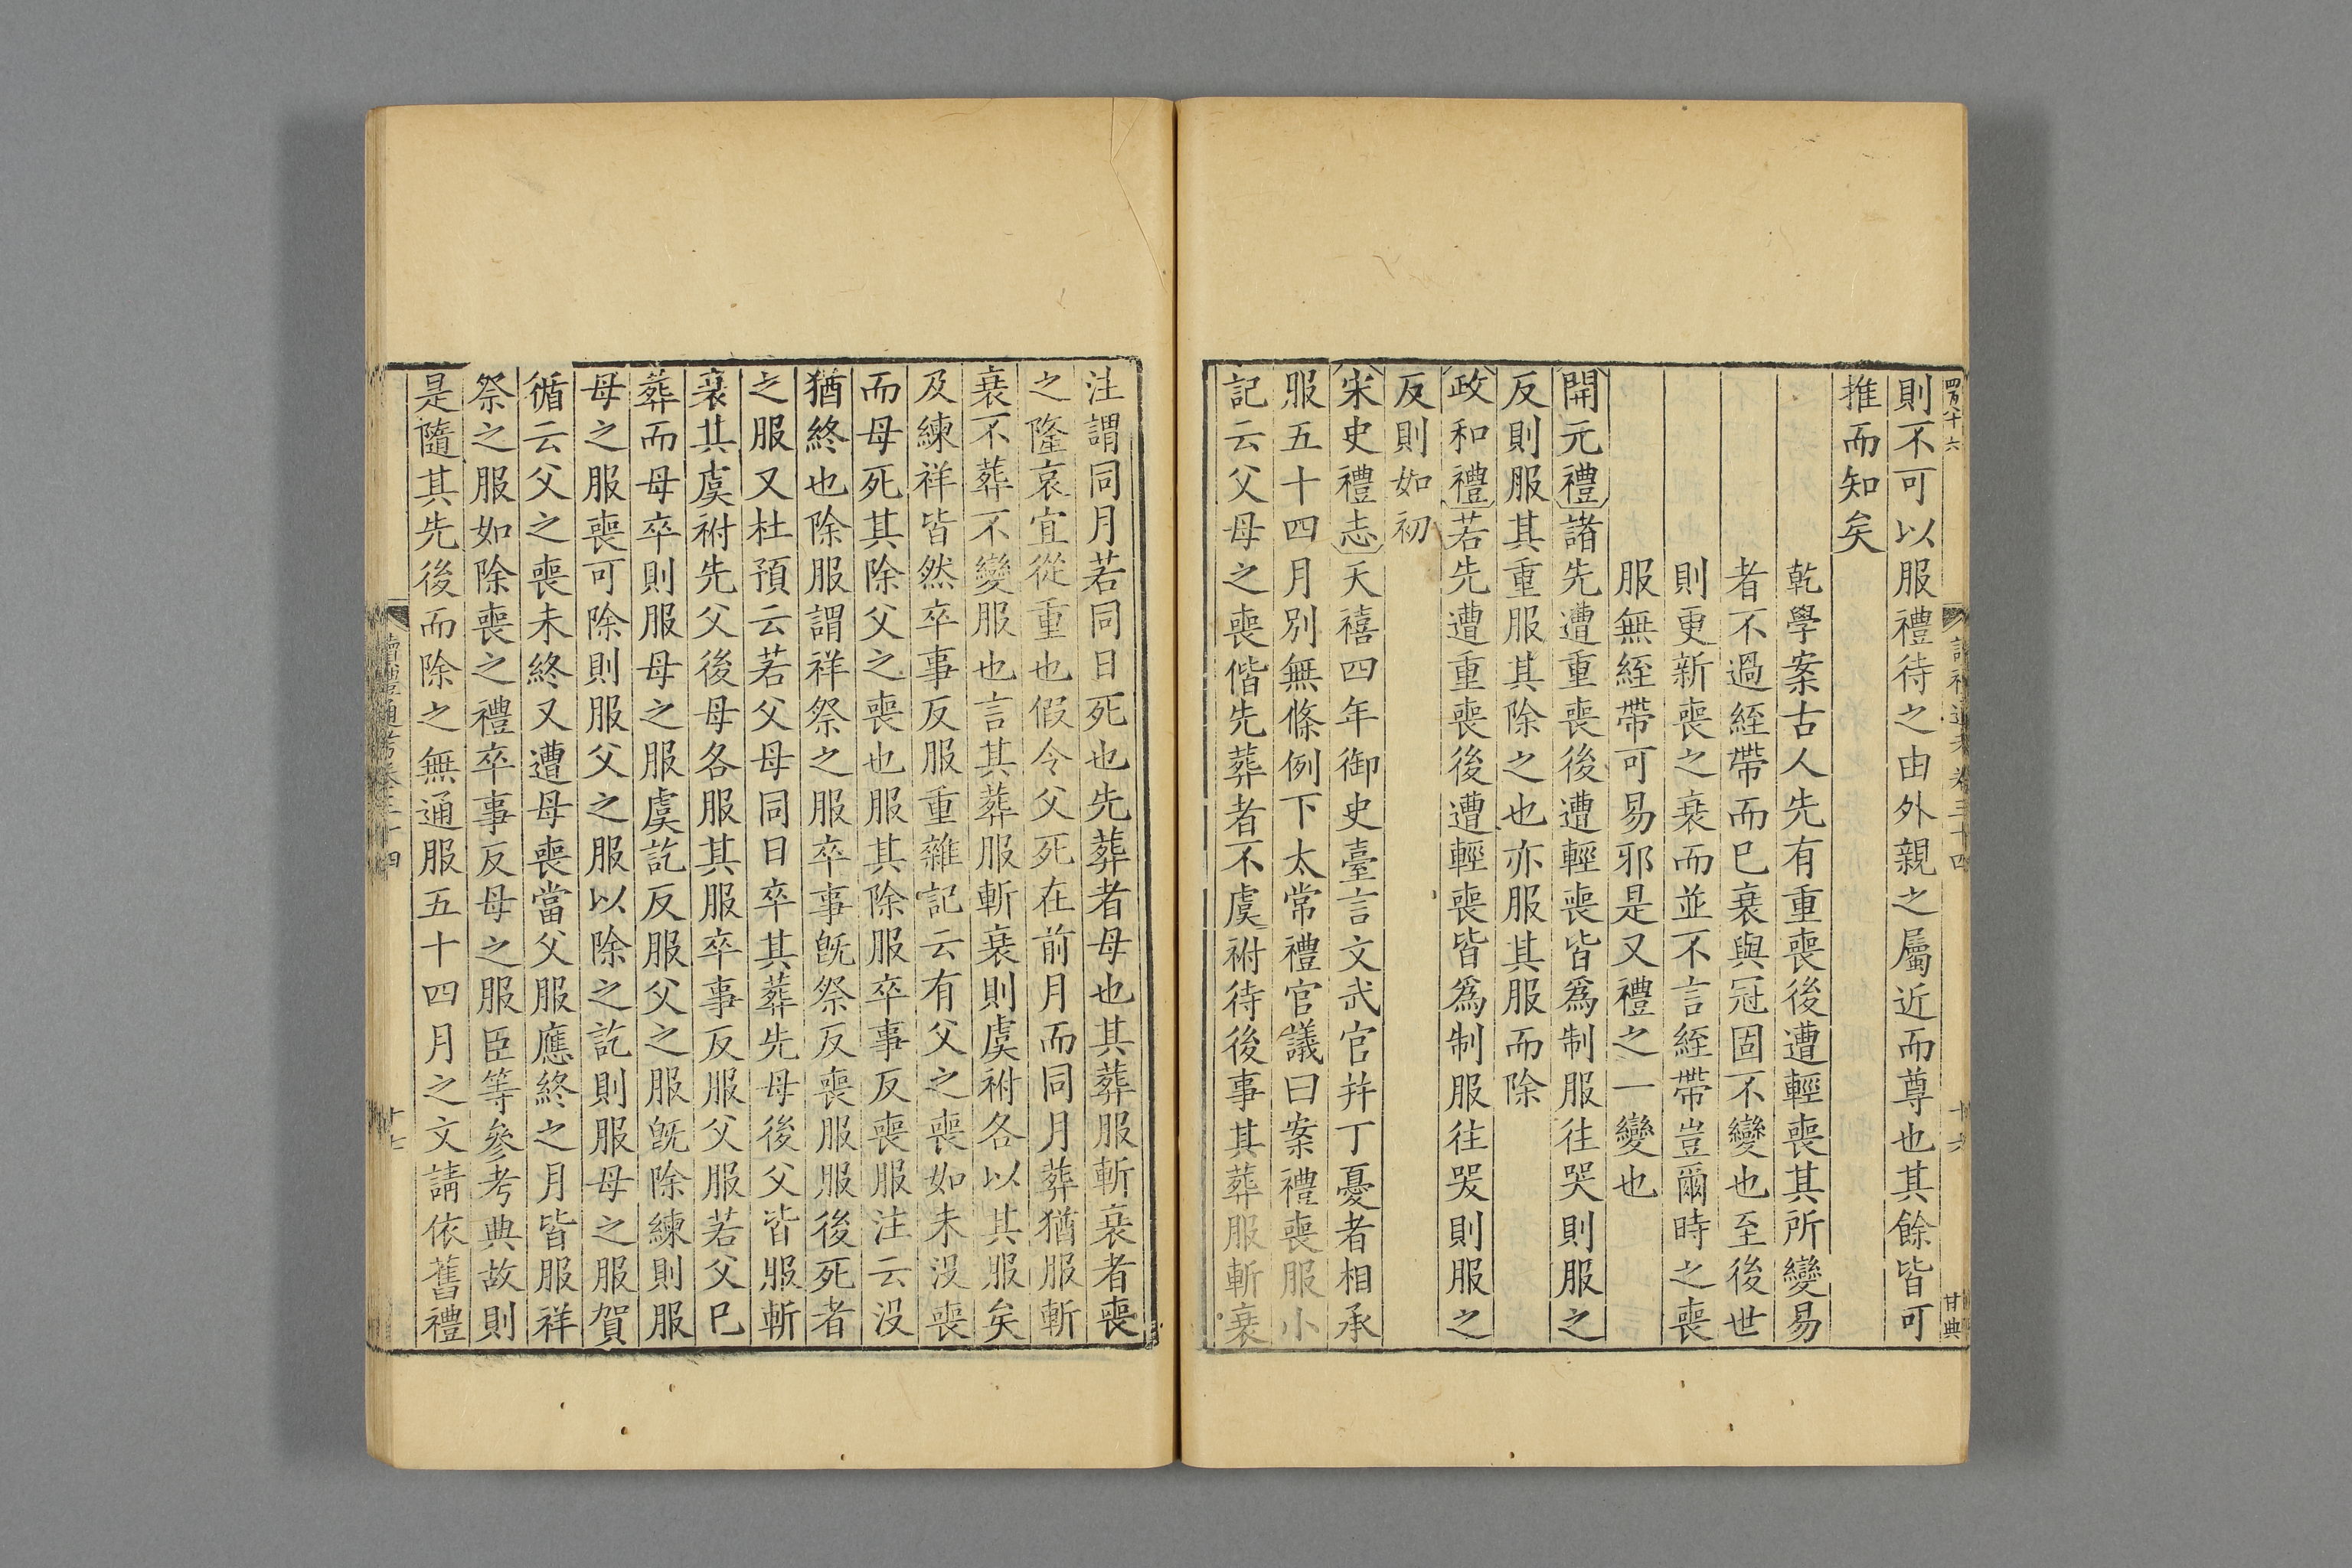 則不可以服禮待之由外親之屬近而尊也其餘皆可
推而知矣
乾學案古人先有重喪後遭輕喪其所變易
者不過絰帶而已衰與冠固不變也至後世
則更新喪之衰而並不言絰帶豈爾時之喪
服無絰帶可易邪是又禮之一變也
開元禮諸先遭重喪後遭輕喪皆爲制服往哭則服之
反則服其重服其除之也亦服其服而除
政和禮若先遭重喪後遭輕喪皆爲制服往哭則服之
反則如初
宋史禮志天禧四年御史臺言文武官幷丁憂者相承
服五十四月別無條例下太常禮官議曰案禮喪服小
記云父母之喪偕先葬者不虞祔待後事其葬服斬衰
注謂同月若同日死也先葬者母也其葬服斬衰者喪
之隆哀宜從重也假令父死在前月而同月葬猶服斬
衰不葬不變服也言其葬服斬衰則虞祔各以其服矣
及練祥皆然卒事反服重雜記云有父之喪如未沒喪
而母死其除父之喪也服其除服卒事反喪服注云沒
猶終也除服謂祥祭之服卒事旣祭反喪服服後死者
之服又杜預云若父母同日卒其葬先母後父皆服斬
衰其虞祔先父後母各服其服卒事反服父服若父已
葬而母卒則服母之服虞訖反服父之服旣除練則服
母之服喪可除則服父之服以除之訖則服母之服賀
循云父之喪未終又遭母喪當父服應終之月皆服祥
祭之服如除喪之禮卒事反母之服臣等參考典故則
是隨其先後而除之無通服五十四月之文請依舊禮
讀禮通考卷三十四
十七